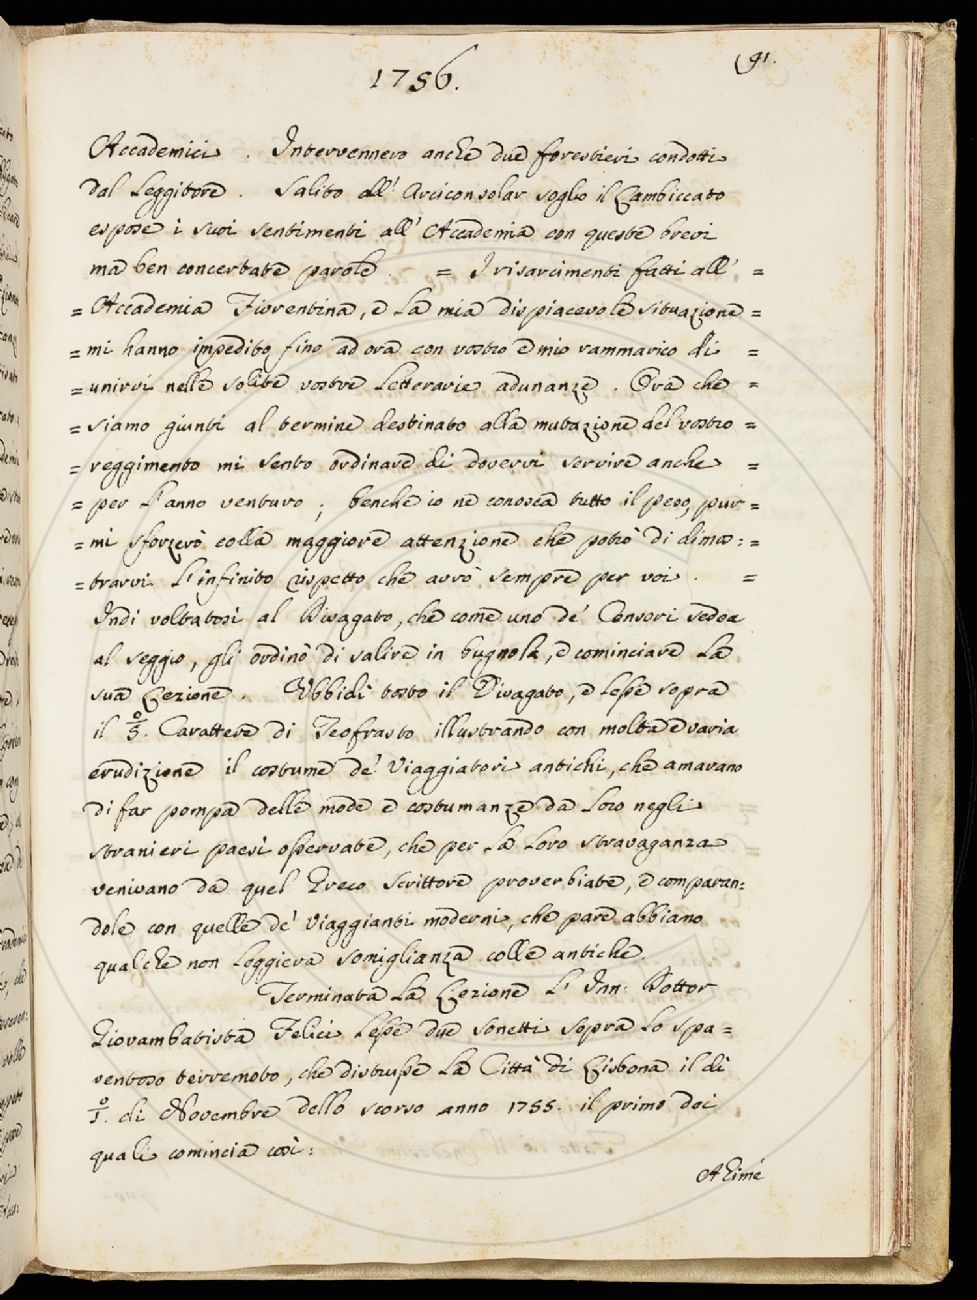 1756.
91.
Accademici. Intervennero anche due forestieri condotti
dal Leggitore. Salito all' Arciconsolar soglio il Lambiccato
espose i suoi sentimenti all' Accademia con queste brevi
ma ben concertate parole. = I risarcimenti fatti all' =
= Accademia Fiorentina, e la mia dispiacevole situazione =
= mi hanno impedito fino ad ora con vostro e mio rammarico di =
= unirvi nelle solite vostre Letterarie adunanze. Ora che =
= siamo giunti al termine destinato alla mutazione del vostro =
= reggimento mi sento ordinare di dovervi servire anche =
= per l'anno venturo; benche io ne conosca tutto il peso, pur =
= mi sforzerò colla maggiore attenzione che potrò di dimos: =
= trarvi l'infinito rispetto che avrò sempre per voi. =
Indi voltatosi al Divagato, che come uno de' Censori sedea
al seggio, gli ordinò di salire in bugnola, e cominciare la
sua Lezione. Ubbidì tosto il Divagato, e lesse sopra
il 5.º Carattere di Teofrasto illustrando con molta e varia
erudizione il costume de' Viaggiatori antichi, che amavano
di far pompa delle mode e costumanze da loro negli
stranieri paesi osservate, che per la loro stravaganza
venivano da quel Greco Scrittore proverbiate, e comparan:
dole con quelle de' Viaggianti moderni, che pare abbiano
qualche non leggiera somiglianza colle antiche.
Terminata la Lezione l' Inn: Dottor
Giovambatista Felici lesse due sonetti sopra lo spa=
ventoso terremoto, che distrusse la Città di Lisbona il dì
1.º di Novembre dello scorso anno 1755. il primo dei
quali comincia così:
Ahimé